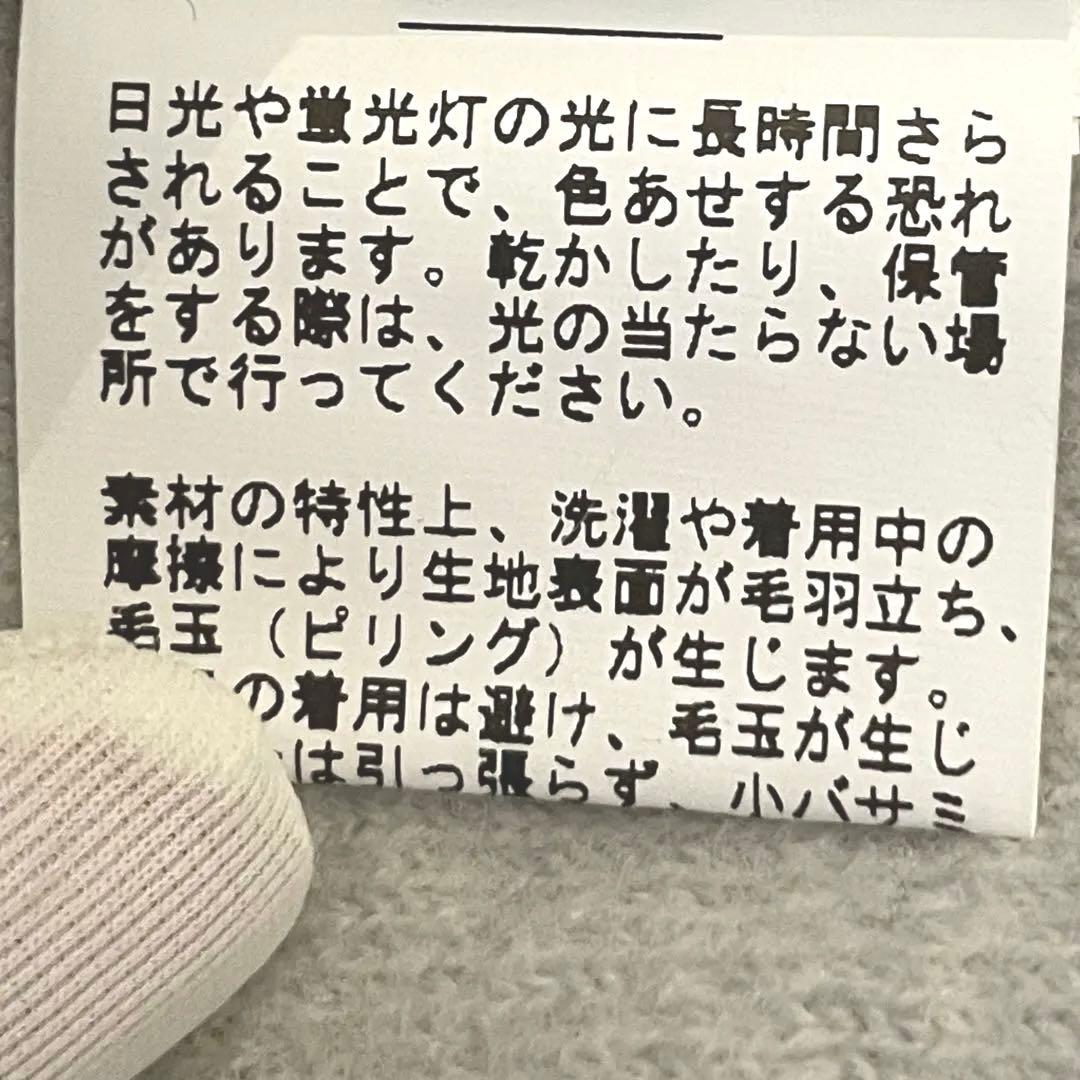 日光や蛍光灯の光に長時間さら
されることで、色あせする恐れ
があります。乾かしたり、保管
をする際は、光の当たらない場
所で行ってください。
素材の特性上、洗濯や着用中の
摩擦により生地表面が毛羽立ち、
毛玉（ピリング）が生じます。
の着用は避け、毛玉が生じ
は引っ張らず、小バサミ